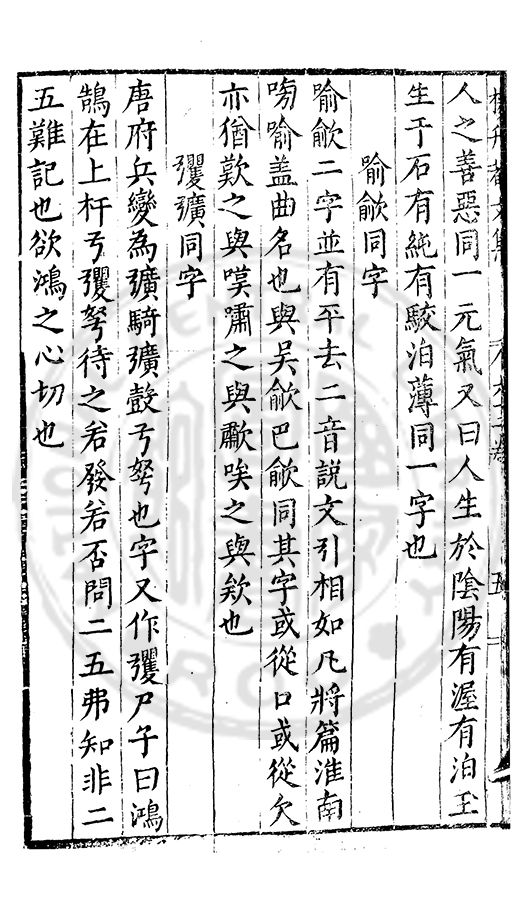 人之善惡同一元氣又曰人生於陰陽有渥有泊玉
生于石有純有駮泊薄同一字也
喻歈同字
喻歈二字並有平去二音說文引相如凡將篇淮南
喻盖曲名也與吴歈巴歈同其字或從口或從欠
亦猶歎之與嘆嘯之與歗唉之與欸也
彏彍同字
唐府兵變為彍騎彍鼓弓弩也字又作彏尸子曰鴻
鵠在上杅弓彏弩待之若發若否問二五弗知非二
五難記也欲鴻之心切也